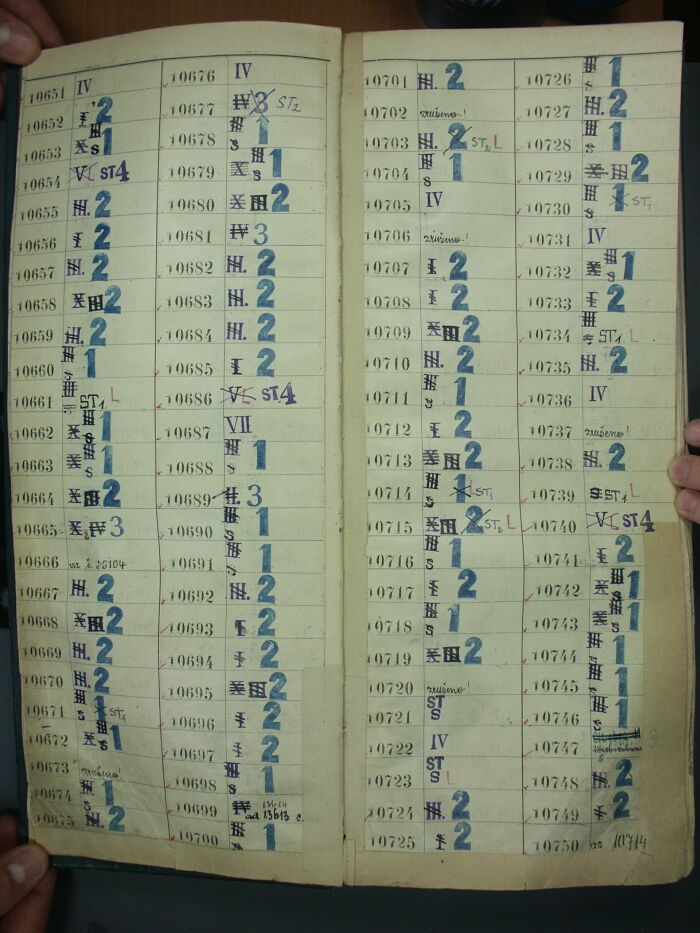 10651 IV
10652 I 2
10653 X III S 1
10654 V L ST4
10655 III. 2
10656 I 2
10657 III. 2
10658 X III 2
10659 III. 2
10660 III S 1
10661 III S ST1 L
10662 X III S 1
10663 X III S 1
10664 X III 2
10665 X IV 3
10666
10667 III. 2
10668 X III 2
10669 III. 2
10670 III. 2
10671 III S 1 ST1
10672 X III S 1
10673 zrušeno!
10674 III S 1
10675 III. 2
10676 IV
10677 IV 3 ST2
10678 III S 1
10679 X III S 1
10680 X III 2
10681 IV 3
10682 III. 2
10683 III. 2
10684 III. 2
10685 I 2
10686 V L ST4
10687 VII
10688 III S 1
10689 II. 3
10690 III S 1
10691 III S 1
10692 III. 2
10693 I 2
10694 I 2
10695 X III 2
10696 I 2
10697 I 2
10698 III S 1
10699 IV 13614 ad 13613 c.
10700 III S 1
10701 III. 2
10702 zrušeno!
10703 III. 2 ST2 L
10704 III S 1
10705 IV
10706 zrušeno!
10707 I 2
10708 I 2
10709 X III 2
10710 III. 2
10711 III S 1
10712 I 2
10713 X III 2
10714 III S 1 L ST1
10715 X III 2 ST2 L
10716 III S 1
10717 I 2
10718 III S 1
10719 X III 2
10720 zrušeno!
10721 ST S
10722 IV
10723 ST S L
10724 III. 2
10725 I 2
10726 III S 1
10727 III. 2
10728 III S 1
10729 X III 2
10730 III S 1 ST1
10731 IV
10732 X III S 1
10733 I 2
10734 III S ST1 L
10735 III. 2
10736 IV
10737 zrušeno!
10738 III. 2
10739 S ST1 L
10740 V L ST4
10741 I 2
10742 X III S 1
10743 X III S 1
10744 III S 1
10745 III S 1
10746 III S 1
10747 3
10748 III. 2
10749 I 2
10750 10714